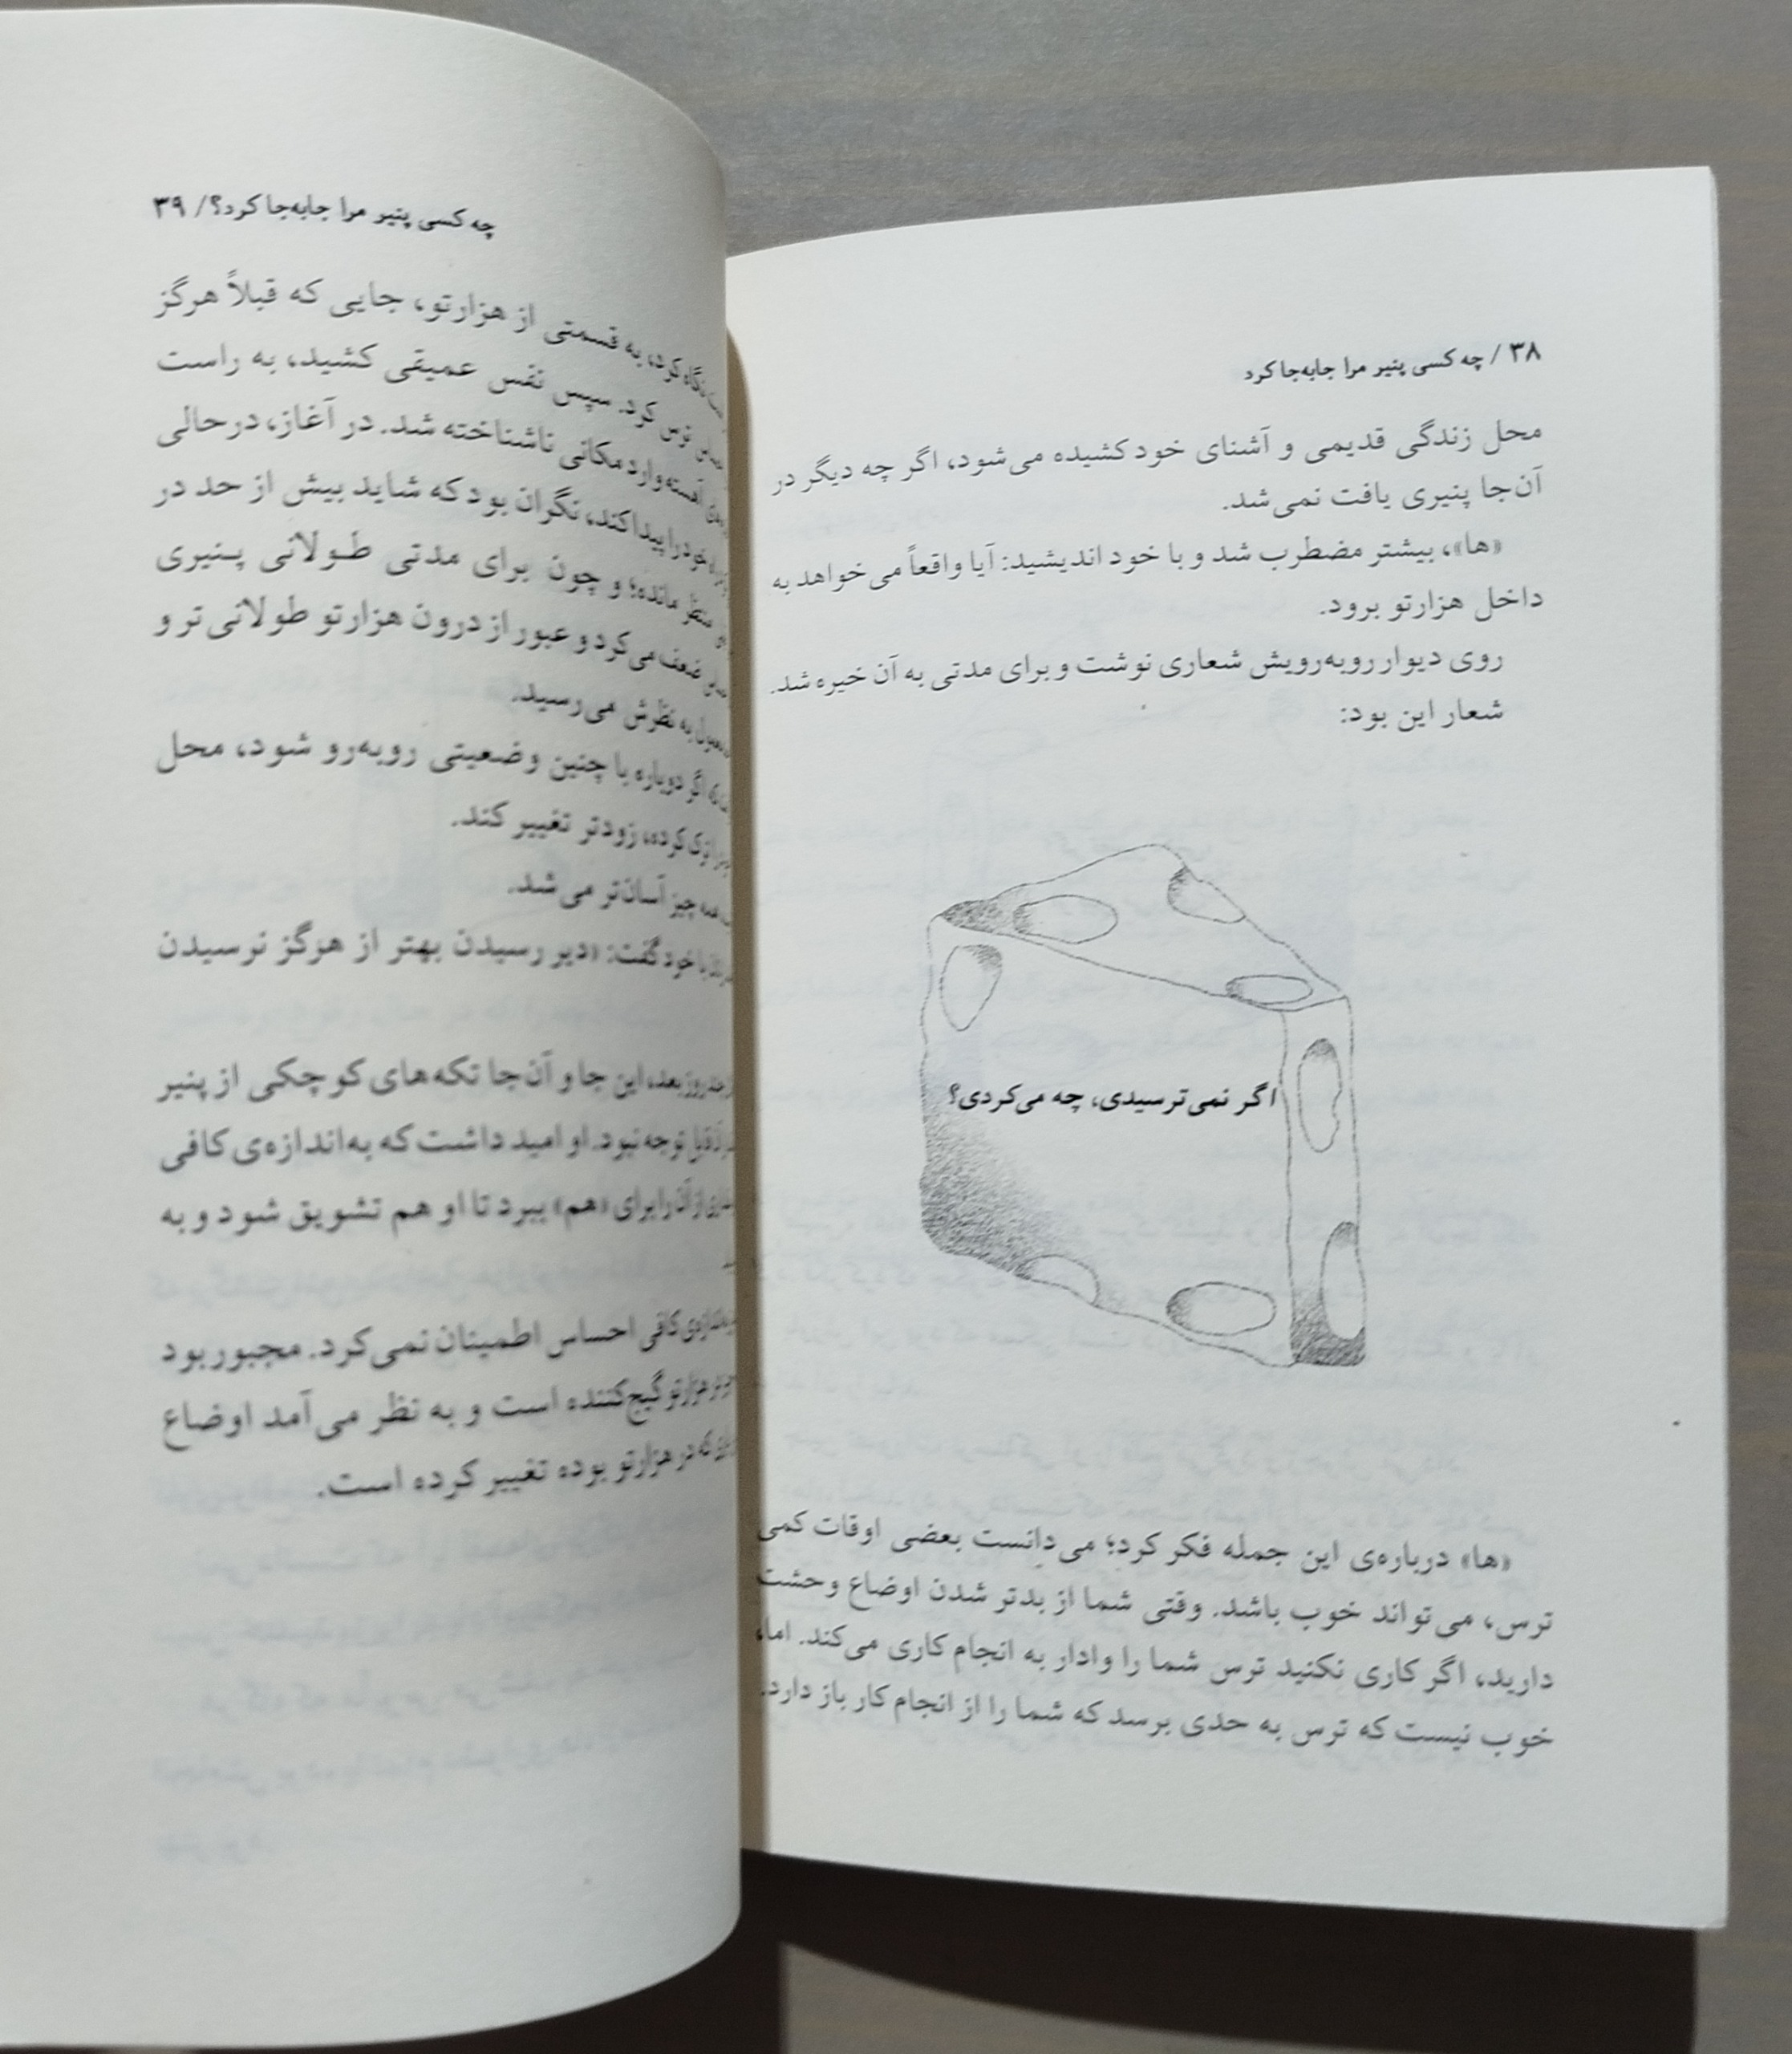 ۳۸ / چه کسی پنیر مرا جابه‌جا کرد
محل زندگی قدیمی و آشنای خود کشیده می‌شود، اگر چه دیگر در
آن‌جا پنیری یافت نمی‌شد.
«ها»، بیشتر مضطرب شد و با خود اندیشید: آیا واقعاً می‌خواهد به
داخل هزارتو برود.
روی دیوار روبه‌رویش شعاری نوشت و برای مدتی به آن خیره شد.
شعار این بود:
اگر نمی‌ترسیدی، چه می‌کردی؟
«ها» درباره‌ی این جمله فکر کرد؛ می‌دانست بعضی اوقات کمی
ترس، می‌تواند خوب باشد. وقتی شما از بدتر شدن اوضاع وحشت
دارید، اگر کاری نکنید ترس شما را وادار به انجام کاری می‌کند. اما،
خوب نیست که ترس به حدی برسد که شما را از انجام کار باز دارد.
چه کسی پنیر مرا جابه‌جا کرد؟/ ۳۹
نگاه کرد، به قسمتی از هزارتو، جایی که قبلاً هرگز
ترس کرد. سپس نفس عمیقی کشید، به راست
آهسته وارد مکانی ناشناخته شد. در آغاز، درحالی
خود را پیدا کند، نگران بود که شاید بیش از حد در
منتظر مانده؛ و چون برای مدتی طولانی پنیری
ضعف می‌کرد و عبور از درون هزارتو طولانی‌تر و
به نظرش می‌رسید.
اگر دوباره با چنین وضعیتی روبه‌رو شود، محل
ترک کرده، زودتر تغییر کند.
همه چیز آسان‌تر می‌شد.
با خود گفت: «دیر رسیدن بهتر از هرگز نرسیدن
چند روز بعد، این جا و آن‌جا تکه‌های کوچکی از پنیر
قابل توجه نبود. او امید داشت که به‌اندازه‌ی کافی
از آن را برای «هم» ببرد تا او هم تشویق شود و به
به‌اندازه‌ی کافی احساس اطمینان نمی‌کرد. مجبور بود
هزارتو گیج‌کننده است و به نظر می‌آمد اوضاع
که در هزارتو بوده تغییر کرده است.